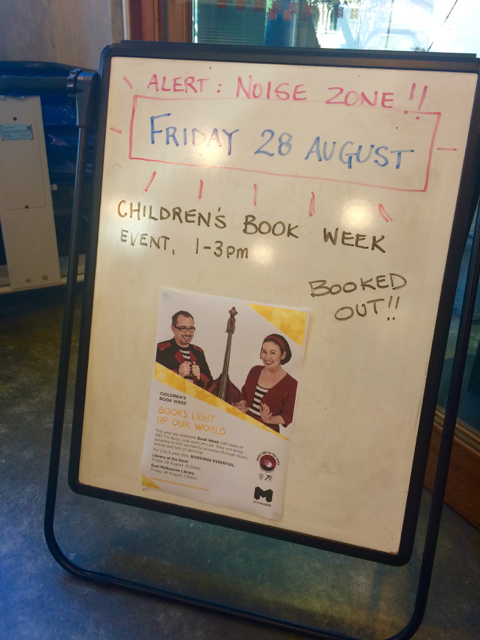 ALERT: NOISE ZONE!!
FRIDAY 28 AUGUST
CHILDREN'S BOOK WEEK
EVENT, 1-3pm
BOOKED
OUT!!
CHILDREN'S
BOOK WEEK
BOOKS LIGHT
UP OUR WORLD
This year we celebrate Book Week with stars of
BOOKINGS ESSENTIAL
Library at the Dock
East Melbourne Library